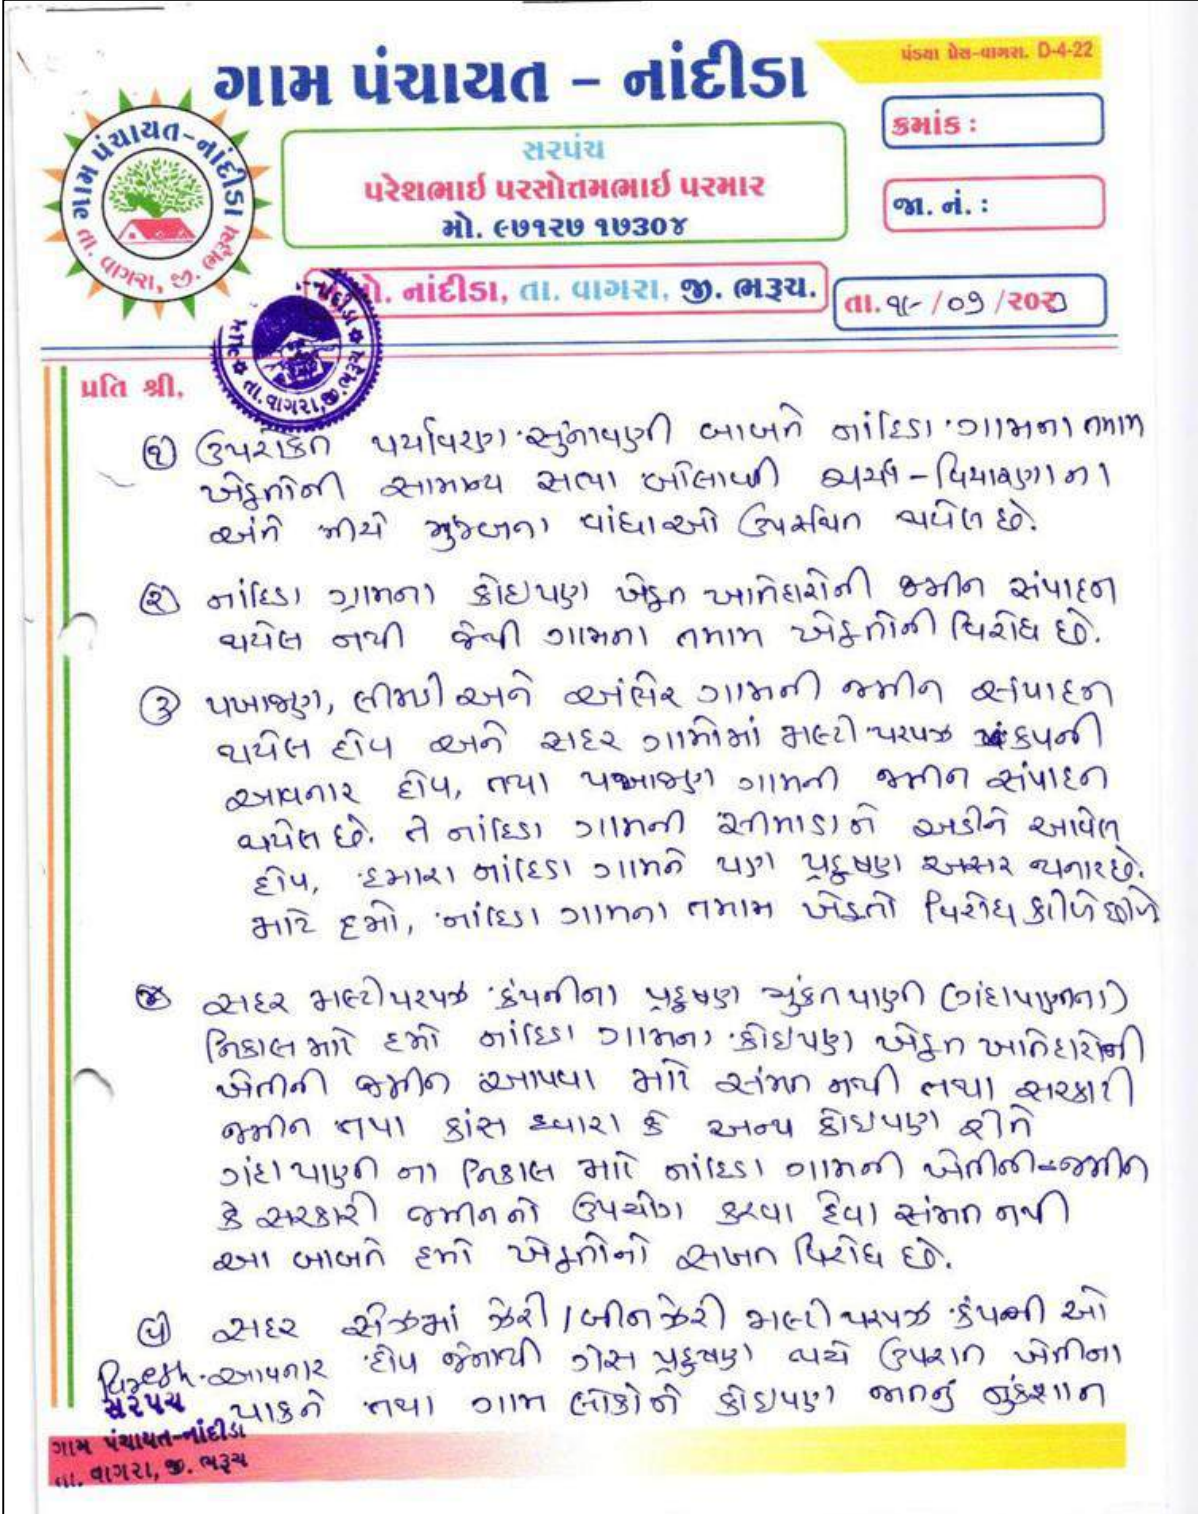 પંડ્યા પ્રેસ-વાગરા. D-4-22
ગામ પંચાયત – નાંદીડા
ગામ પંચાયત-નાંદીડા
તા. વાગરા, જી. ભરૂચ
સરપંચ
પરેશભાઈ પરસોતમભાઈ પરમાર
મો. ૯૭૧૨૭ ૧૭૩૦૪
ક્રમાંક :
જા. નં. :
મો. નાંદીડા, તા. વાગરા, જી. ભરૂચ.
તા. /૦૭ /૨૦૨૩
તા. વાગરા, જી. ભરૂચ
પ્રતિ શ્રી,
૧ ઉપરોકત પર્યાવરણ સુનાવણી બાબતે નાંદિડા ગામના તમામ
ખેડુતોની સામાન્ય સભા બોલાવી ચર્ચા – વિચારણાના
અંતે નીચે મુજબના વાંધાઓ ઉપસ્થિત થયેલ છે.
૨ નાંદિડા ગામના કોઇપણ ખેડુત ખાતેદારોની જમીન સંપાદન
થયેલ નથી જેથી ગામના તમામ ખેડુતોની વિરોધ છે.
૩ પખાજણ, લીમડી અને અંભેર ગામની જમીન સંપાદન
થયેલ હોય અને સદર ગામોમાં મલ્ટી પરપઝ કંપની
આવનાર હોય, તથા પખાજણ ગામની જમીન સંપાદન
થયેલ છે. તે નાંદિડા ગામની સીમાડાને અડીને આવેલ
હોય, હમારા નાંદિડા ગામને પણ પ્રદુષણ અસર થનાર છે.
માટે હમો, નાંદિડા ગામના તમામ ખેડુતો વિરોધ કરીએ છીએ
૪ સદર મલ્ટીપરપઝ કંપનીના પ્રદુષણ યુકત પાણી (ગંદાપાણીના)
નિકાલ માટે હમો નાંદિડા ગામના કોઇપણ ખેડુત ખાતેદારોની
ખેતીની જમીન આપવા માટે સંમત નથી તથા સરકારી
જમીન તથા કાંસ ધ્વારા કે અન્ય કોઇપણ રીતે
ગંદા પાણી ના નિકાલ માટે નાંદિડા ગામની ખેતીની જમીન
કે સરકારી જમીનનો ઉપયોગ કરવા દેવા સંમત નથી
આ બાબતે હમો ખેડુતોનો સખત વિરોધ છે.
૫ સદર સેઝમાં ઝેરી / બીનઝેરી મલ્ટી પરપઝ કંપની ઓ
આવનાર હોય જેનાથી ગેસ પ્રદુષણ થશે ઉપરાત ખેતીના
પાકને તથા ગામ લોકોને કોઇપણ જાતનું નુકશાન
સરપંચ
ગામ પંચાયત-નાંદીડા
તા. વાગરા, જી. ભરૂચ